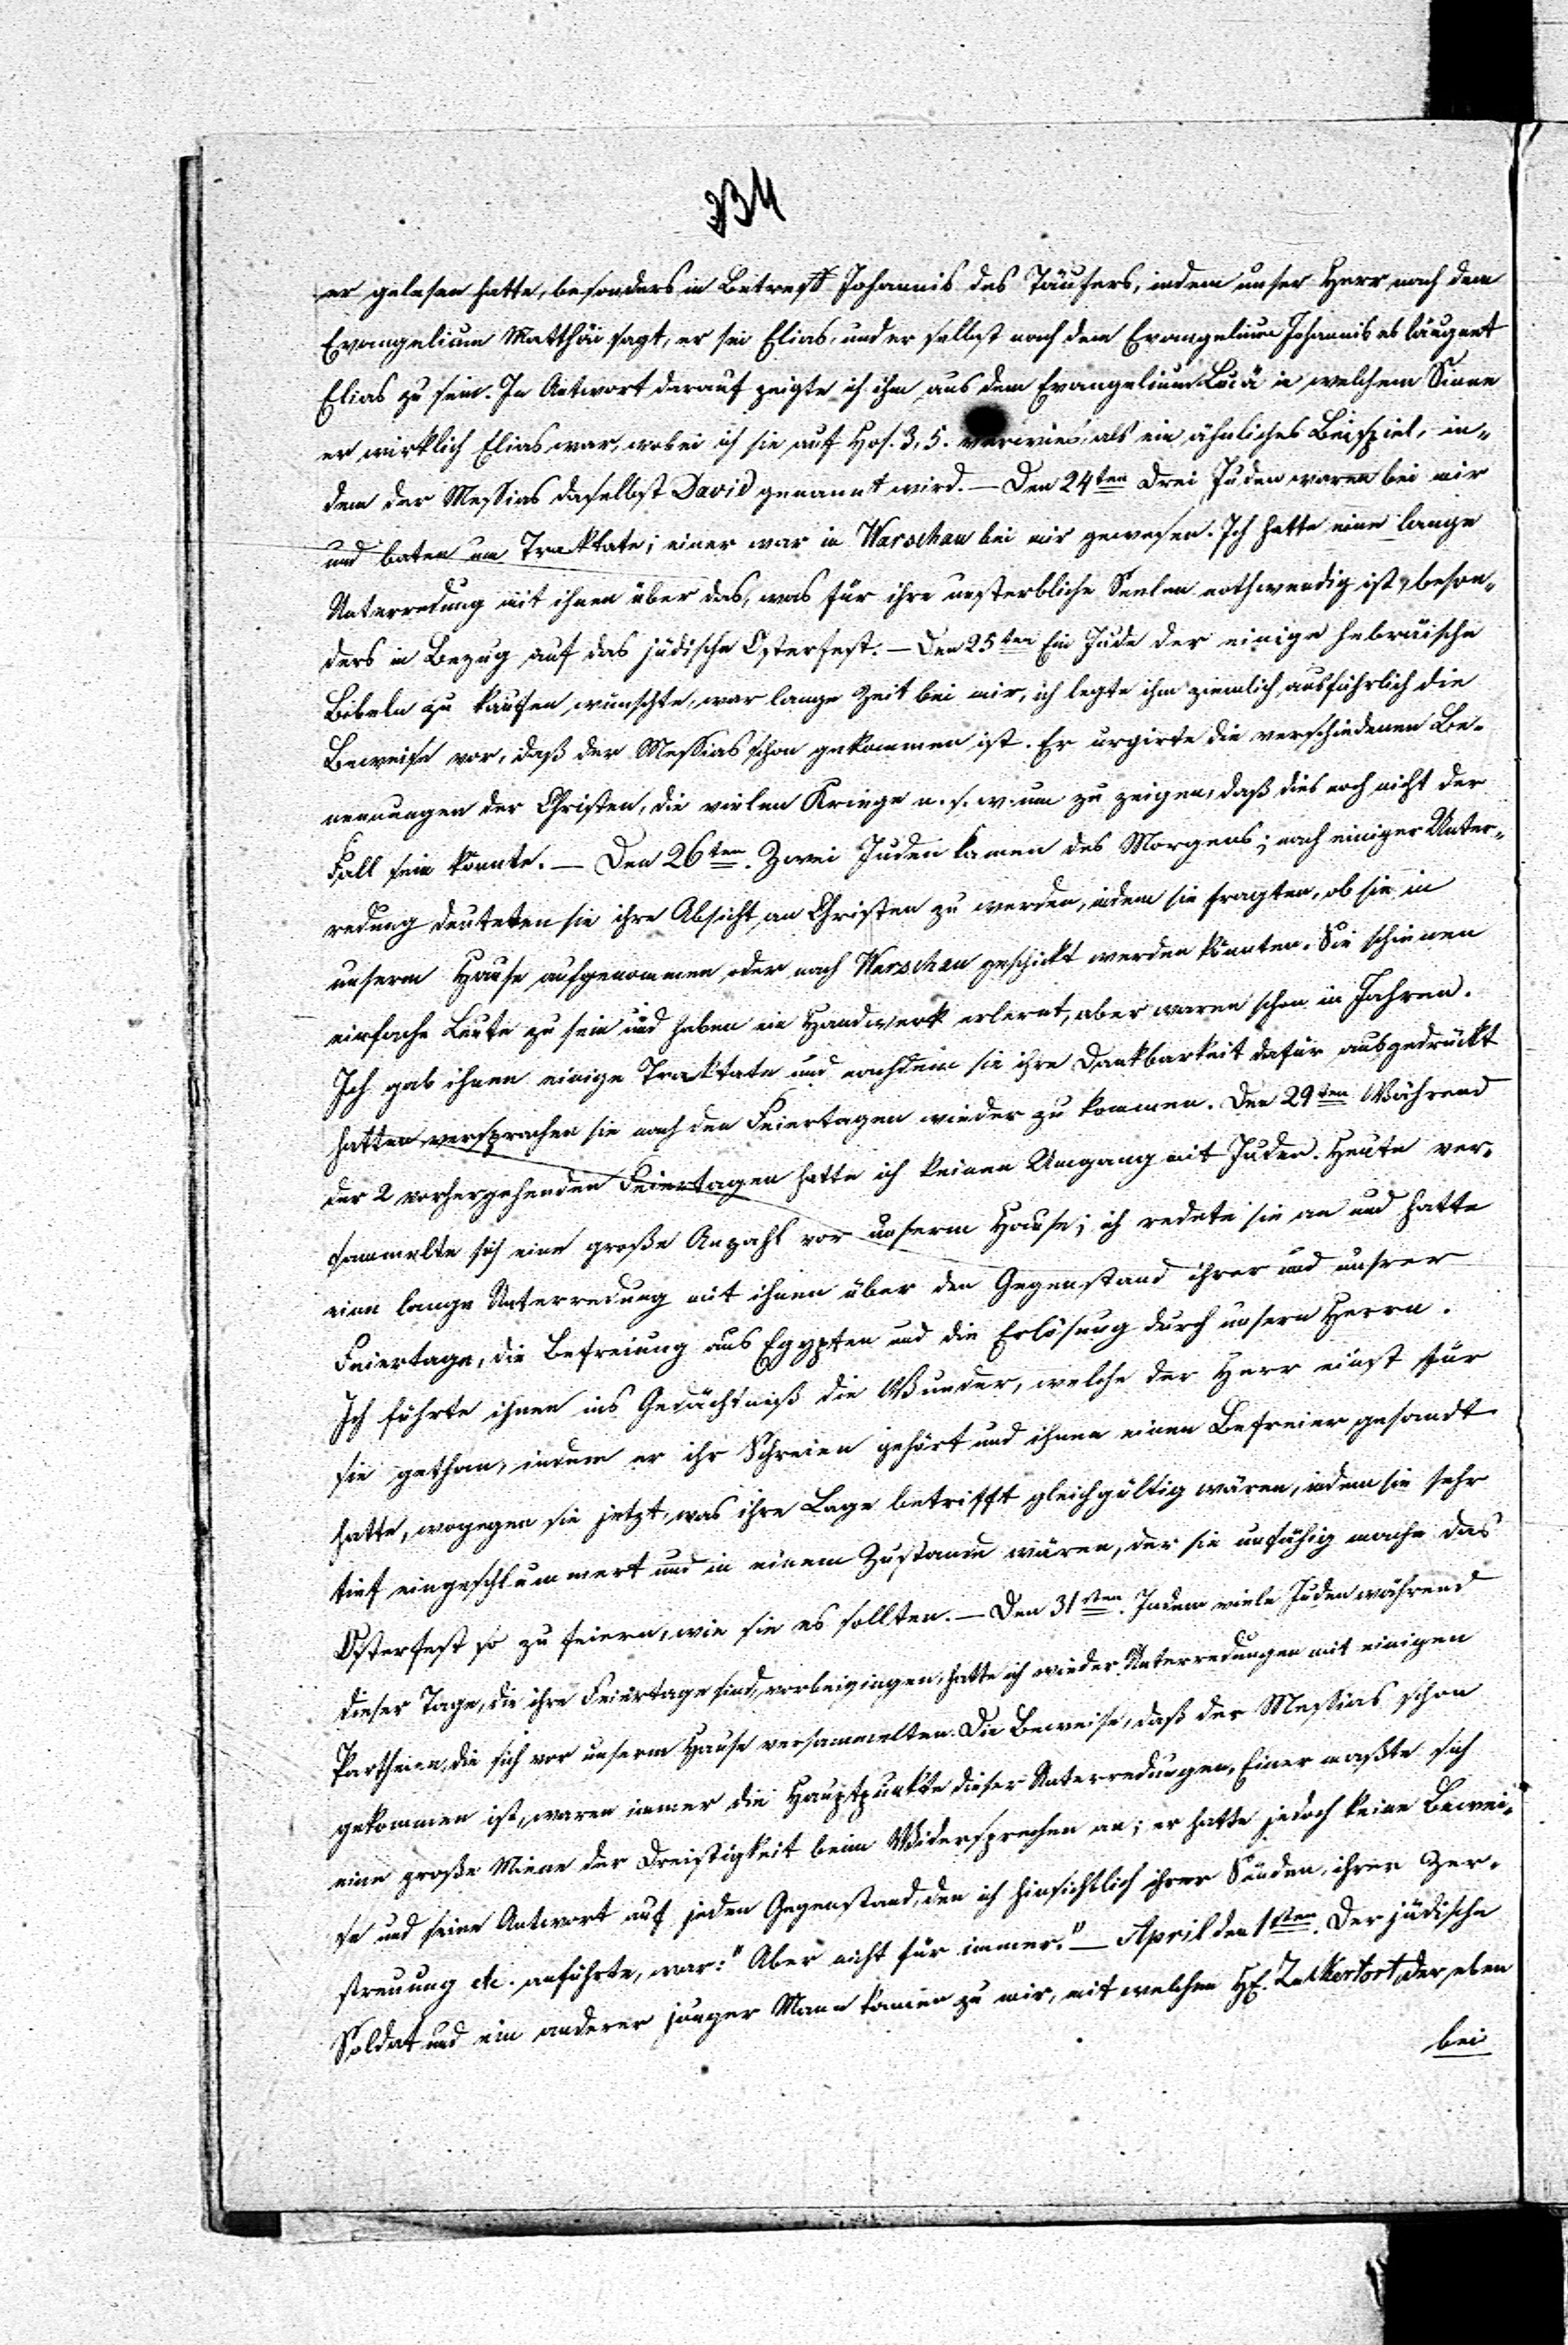 234
er gelesen hatte, besonders in Betreff Johannis des Täufers, indem unser Herr nach dem
Evangelium Matthäi sagt, er sei Elias, und er selbst nach dem Evangelium Johannis es läugnet
Elias zu sein. In Antwort darauf zeigte ich ihm aus dem Evangelium Lucä in welchem Sinne
er wirklich Elias war, wobei ich sie auf Hos. 3, 5. verwies, als ein ähnliches Beispiel, in-
dem der Messias daselbst David genannt wird. — Den 24ten Drei Juden waren bei mir
und baten um Traktate; einer war in Warschau bei mir gewesen. Ich hatte eine lange
Unterredung mit ihnen über das, was für ihre unsterbliche Seelen nothwendig ist, beson-
ders in Bezug auf das jüdische Osterfest. — Den 25ten Ein Jude der einige hebräische
Bibeln zu kaufen wünschte, war lange Zeit bei mir, ich legte ihm ziemlich ausführlich die
Beweise vor, daß der Messias schon gekommen ist. Er urgirte die verschiedenen Be-
nennungen der Christen, die vielen Kriege u. s. w. um zu zeigen, daß dies noch nicht der
Fall sein könnte. — Den 26ten. Zwei Juden kamen des Morgens; nach einiger Unter-
redung deuteten sie ihre Absicht an Christen zu werden, indem sie fragten, ob sie in
unserm Hause aufgenommen oder nach Warschau geschickt werden könnten. Sie schienen
einfache Leute zu sein und haben ein Handwerk erlernt, aber waren schon in Jahren.
Ich gab ihnen einige Traktate und nachdem sie ihre Dankbarkeit dafür ausgedrückt
hatten versprachen sie nach den Feiertagen wieder zu kommen. Den 29ten Während
der 2 vorhergehenden Feiertagen hatte ich keinen Umgang mit Juden. Heute ver-
sammelte sich eine große Anzahl vor unserm Hause; ich redete sie an und hatte
eine lange Unterredung mit ihnen über den Gegenstand ihrer und unsrer
Feiertage, die Befreiung aus Egypten und die Erlösung durch unsern Herrn.
Ich führte ihnen ins Gedächtniß die Wunder, welche der Herr einst für
sie gethan, indem er ihr Schreien gehört und ihnen einen Befreier gesandt
hatte, wogegen sie jetzt, was ihre Lage betrifft gleichgültig wären, indem sie sehr
tief eingeschlummert und in einem Zustande wären, der sie unfähig mache das
Osterfest so zu feiern, wie sie es sollten. — Den 31sten. Indem viele Juden während
dieser Tage, die ihre Feiertage sind, vorbeigingen, hatte ich wieder Unterredungen mit einigen
Partheien, die sich vor unserm Hause versammelten. Die Beweise, daß der Messias schon
gekommen ist, waren immer die Hauptpunkte dieser Unterredungen, Einer maßte sich
eine große Miene der Dreistigkeit beim Widersprechen an; er hatte jedoch keine Bewei-
se und seine Antwort auf jeden Gegenstand, den ich hinsichtlich ihrer Sünden, ihrer Zer-
streuung etc. anführte, war: "Aber nicht für immer." — April den 1sten. Der jüdische
Soldat und ein anderer junger Mann kamen zu mir, mit welchem H. Zuckertort, der eben
bei